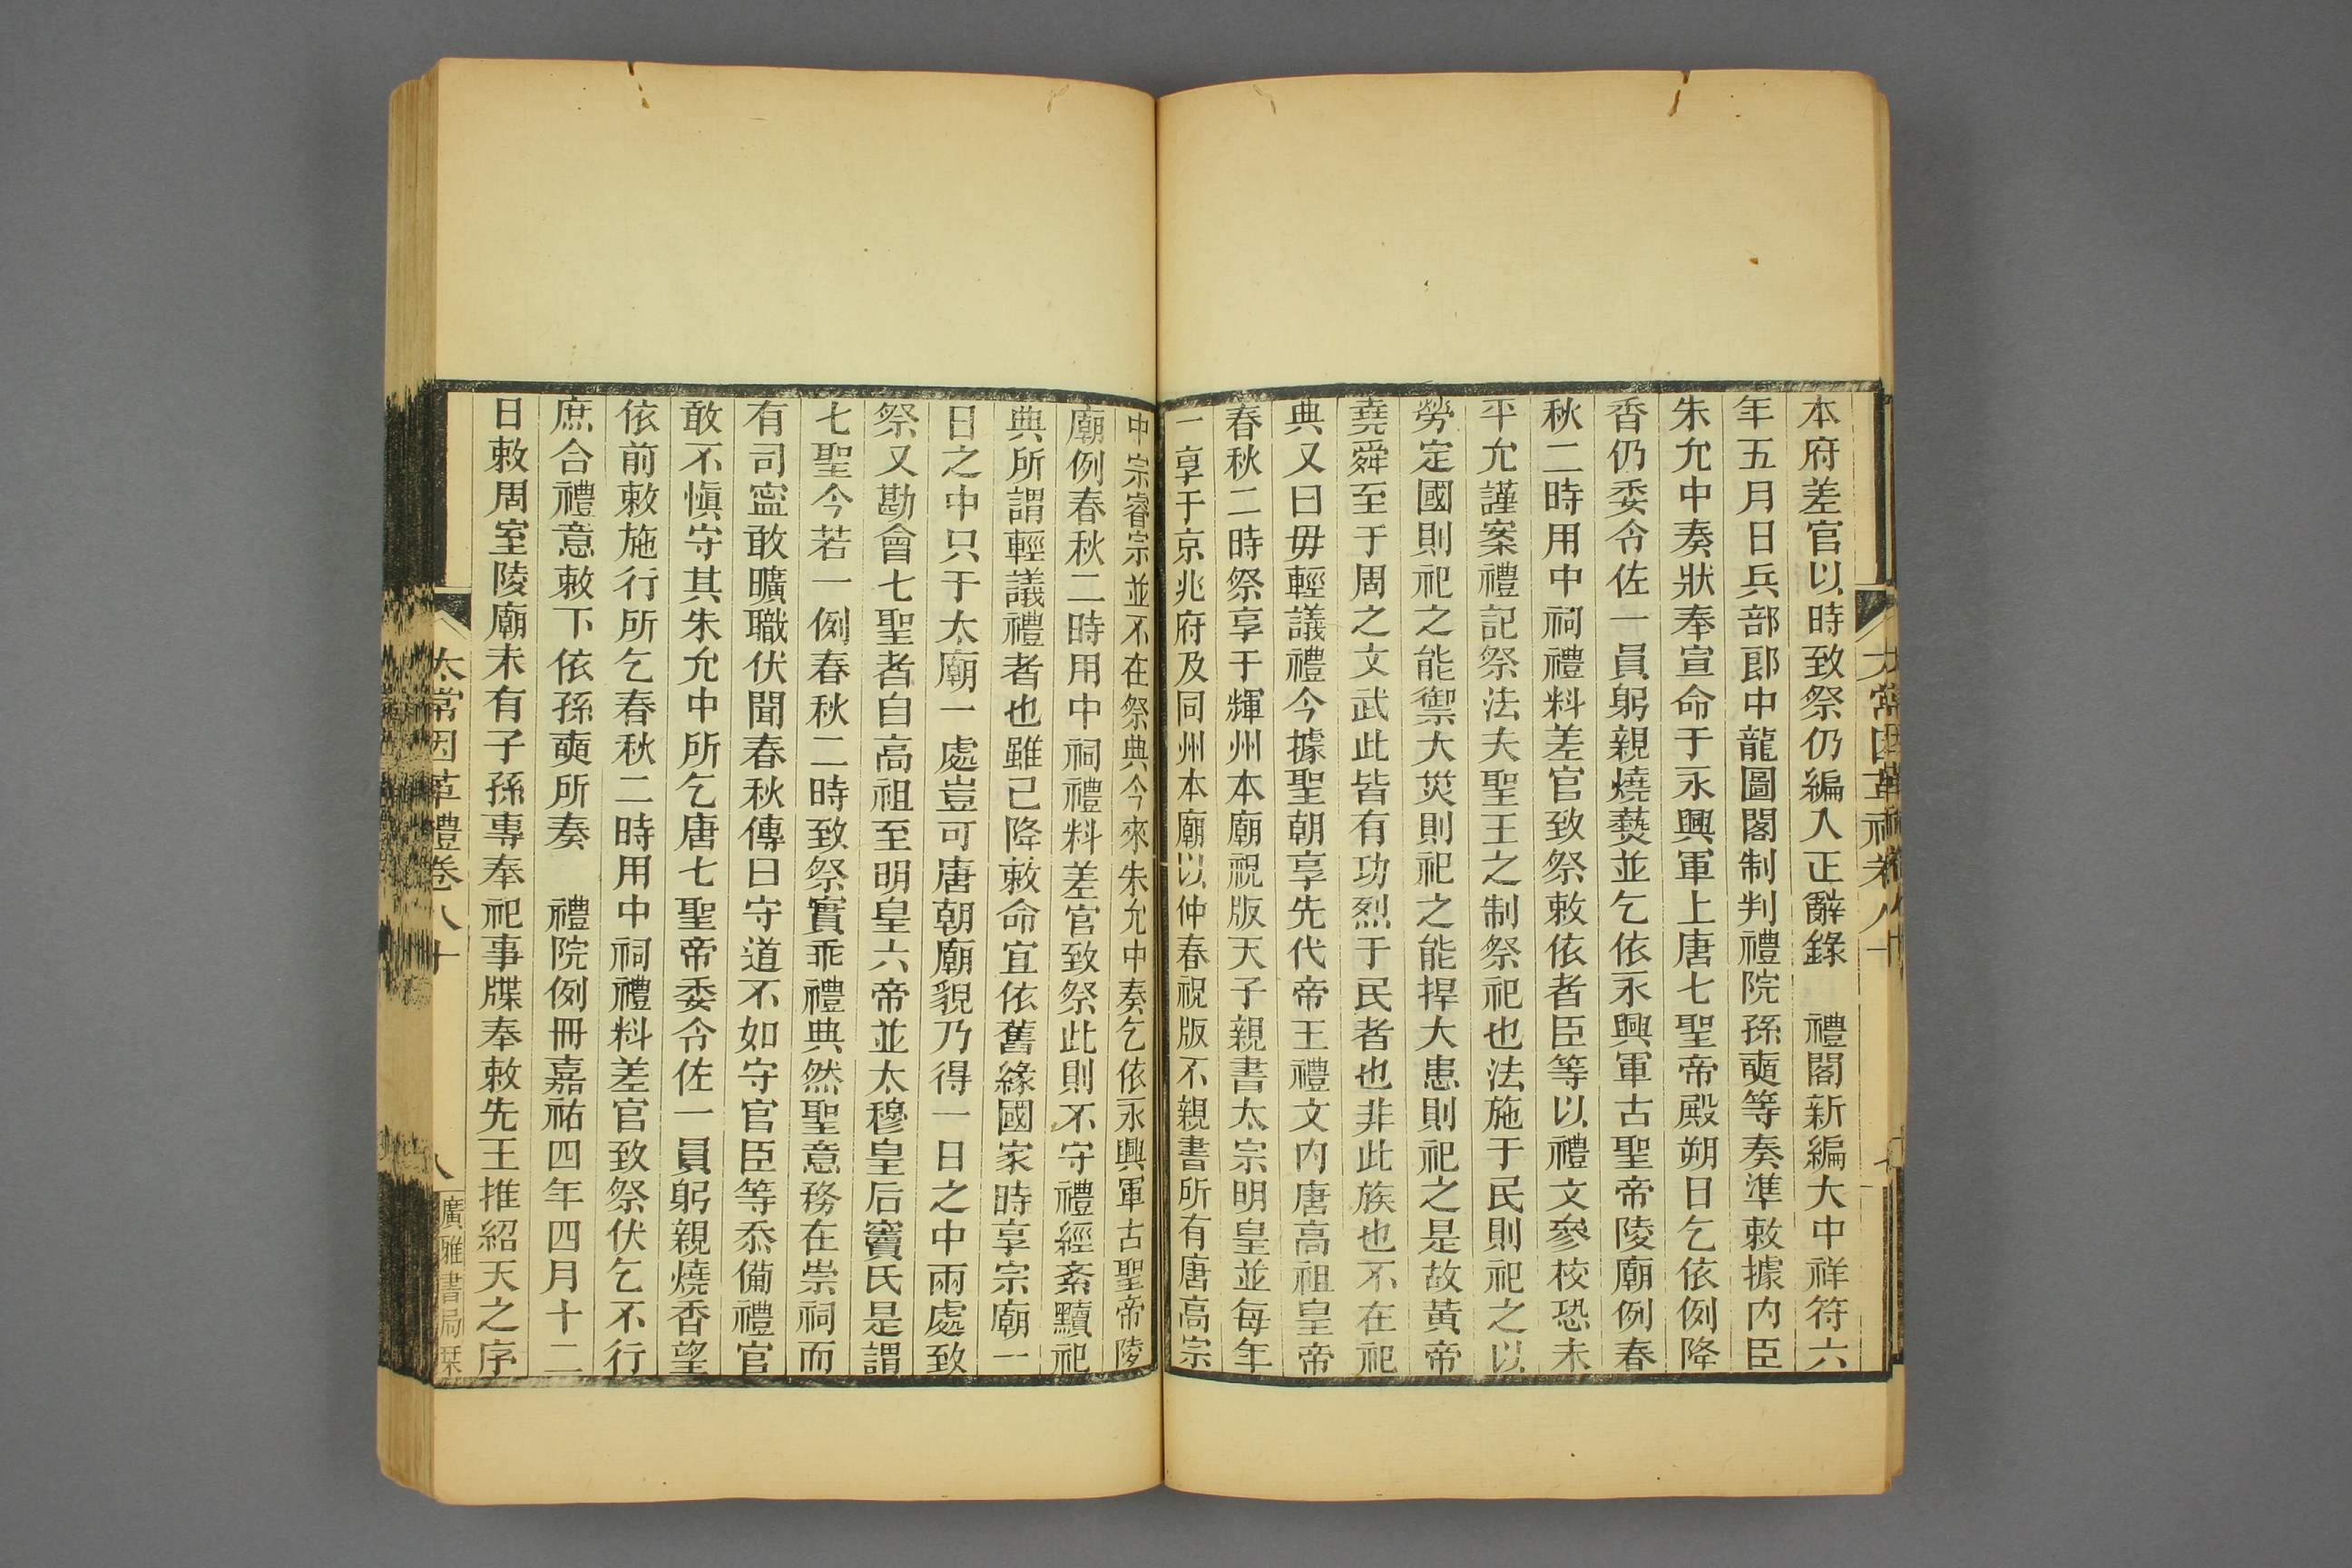 本府差官以時致祭仍編入正辭錄　禮閣新編大中祥符六
年五月日兵部郎中龍圖閣制判禮院孫奭等奏準敕據內臣
朱允中奏狀奉宣命于永興軍上唐七聖帝殿朔日乞依例降
香仍委令佐一員躬親燒爇並乞依永興軍古聖帝陵廟例春
秋二時用中祠禮料差官致祭敕依者臣等以禮文參校恐未
平允謹案禮記祭法夫聖王之制祭祀也法施于民則祀之以
勞定國則祀之能禦大災則祀之能捍大患則祀之是故黃帝
堯舜至于周之文武此皆有功烈于民者也非此族也不在祀
典又曰毋輕議禮今據聖朝享先代帝王禮文內唐高祖皇帝
春秋二時祭享于輝州本廟祝版天子親書太宗明皇並每年
一享于京兆府及同州本廟以仲春祝版不親書所有唐高宗
中宗睿宗並不在祭典今來朱允中奏乞依永興軍古聖帝陵
廟例春秋二時用中祠禮料差官致祭此則不守禮經紊黷祀
典所謂輕議禮者也雖已降敕命宜依舊緣國家時享宗廟一
日之中只于太廟一處豈可唐朝廟貌乃得一日之中兩處致
祭又勘會七聖者自高祖至明皇六帝並太穆皇后竇氏是謂
七聖今若一例春秋二時致祭實乖禮典然聖意務在崇祠而
有司寍敢曠職伏聞春秋傳曰守道不如守官臣等忝備禮官
敢不愼守其朱允中所乞唐七聖帝委令佐一員躬親燒香望
依前敕施行所乞春秋二時用中祠禮料差官致祭伏乞不行
庶合禮意敕下依孫奭所奏　禮院例冊嘉祐四年四月十二
日敕周室陵廟未有子孫專奉祀事牒奉敕先王推紹天之序
太常因革禮卷八十
八
廣雅書局栞